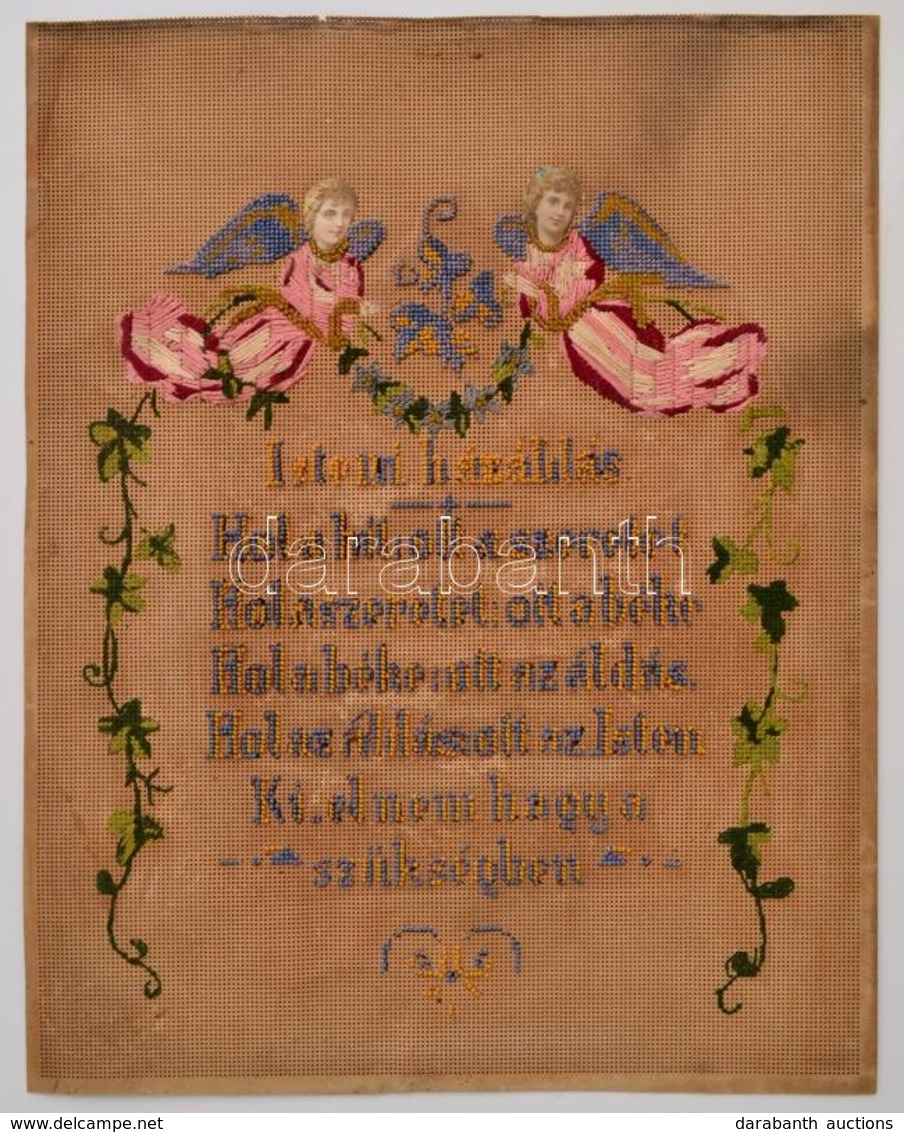 Isteni házáldás.
Hol a hit, ott a szeretet
Hol a szeretet: ott a béke
Hol a béke: ott az áldás.
Hol az Áldás: ott az Isten
Ki el nem hagy a
szükségben
darabanth
www.delcampe.net
darabanth auctions